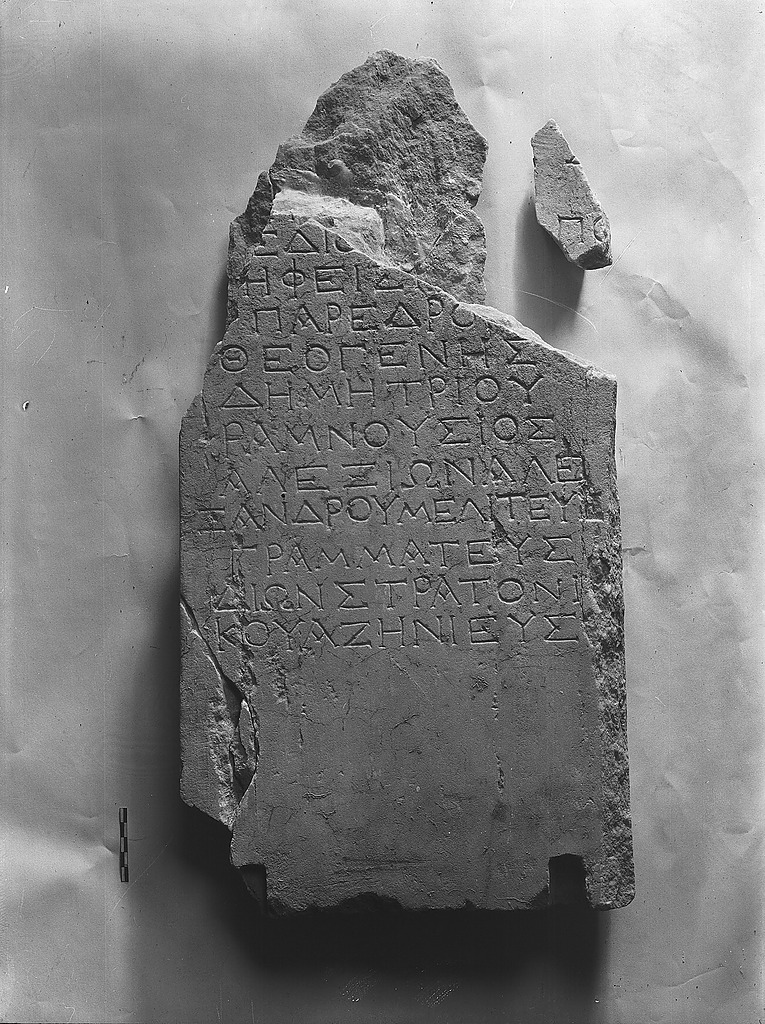 ΠΟ
ΕΔΙ
ΗΦΕΙΣ
ΠΑΡΕΔΡΟ
ΘΕΟΓΕΝΗΣ
ΔΗΜΗΤΡΙΟΥ
ΡΑΜΝΟΥΣΙΟΣ
ΑΛΕΞΙΩΝΑΛΕ
ΞΑΝΔΡΟΥΜΕΛΙΤΕΥΣ
ΓΡΑΜΜΑΤΕΥΣ
ΔΙΩΝΣΤΡΑΤΟΝΙ
ΚΟΥΑΖΗΝΙΕΥΣ